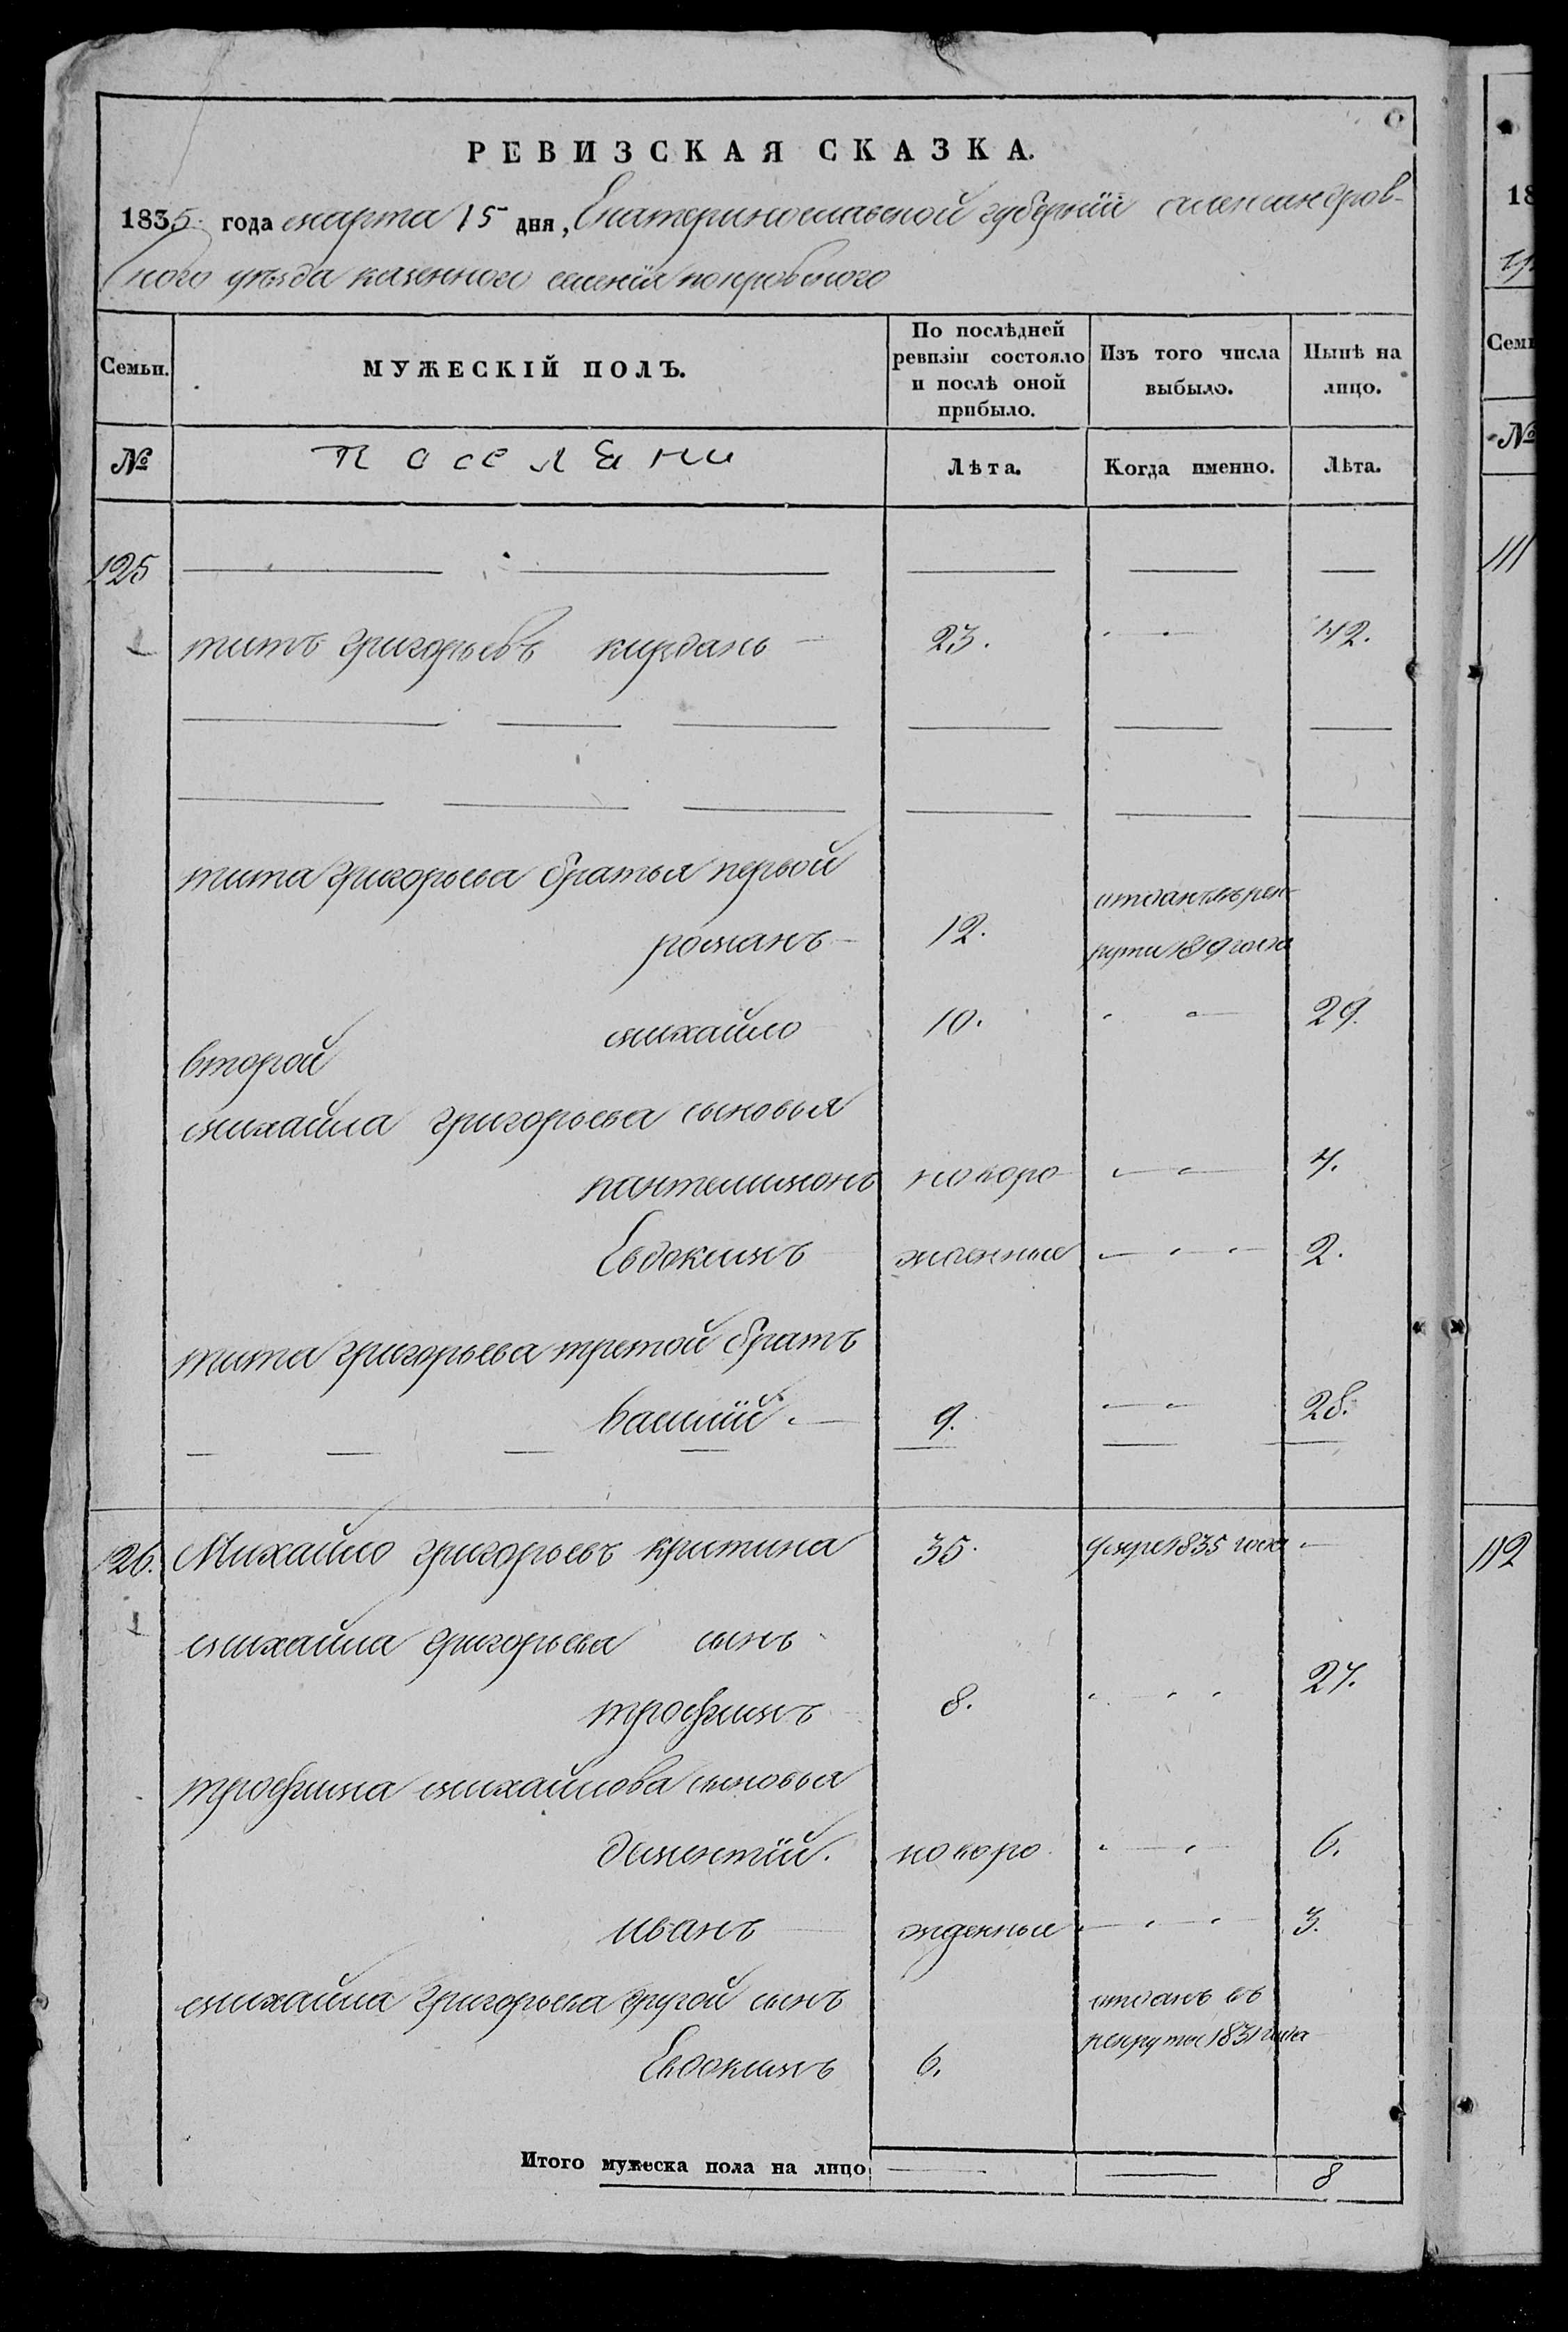 РЕВИЗСКАЯ СКАЗКА.
1835 года марта 15 дня, Екатеринославской губернїи александров-
ского уѣзда казенного селенїя покровского
Семьи.
МУЖЕСКІЙ ПОЛЪ.
По послѣдней ревизіи состояло и послѣ оной прибыло.
Изъ того числа выбыло.
Нынѣ на лицо.
№
поселяни
Лѣта.
Когда именно.
Лѣта.
125
титъ григорьевъ кирдань 23. 42.
тита григорьева братья первой
романъ 12. отданъ въ рек-
рути 1819 года
михайло 10. 29.
второй
михайла григорьева сыновья
пантелимонъ новоро 4.
Евдокимъ жденные 2.
тита григорьева третой братъ
василїй 9. 28.
126. Михайло григорьевъ критина 35. умре 1835 года
михайла григорьева сынъ
трофимъ 8. 27.
трофима михайлова сыновья
дементїй. новоро 6.
иванъ жденные 3.
михайла григорьева другой сынъ отданъ въ
рекруты 1831 года
Евдокимъ 6.
Итого мужеска пола на лицо 8
18
Семь
№
111
112